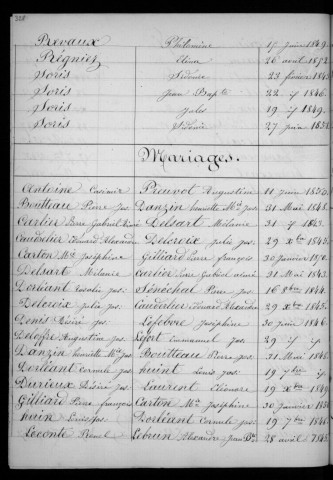 328
Prevaux Philomène 17 juin 1849.
Régnier Elina 26 avril 1872.
Soris Sidonie 23 février 1843.
Soris Jean Bapte 22 if 1846.
Soris Jules 19 if 1849.
Soris Sidonie 27 juin
Mariages.
Antoine Casimir Preuvot Augustine 11 juin 1853.
Boutteau Pierre jos. Danzin Mie jos. 31 Mai 1848.
Carlier Pierre Gabriel Delsart Mélanie 31 if 1843.
Caudelier Edouard Alexandre Delcroix Julie jos. 29 Xbre 1845.
Carton Mie Joséphine Gilliard Pierre françois 30 janvier
Delsart Mélanie Carlier Pierre Gabriel 31 Mai 1843.
Dorléant Rosalie jos. Sénéchal Pierre jos. 16 8bre 1844.
Delcroix Julie jos. Caudelier Edouard Alexandre 29 Xbre 1845.
Denis Désiré jos. Lefebvre Joséphine 30 juin 1846.
Deloffre Augustine jos. Lefort Emmanuel jos. 29 if if
Danzin Mie jos. Boutteau Pierre jos. 31 Mai 1848.
Dorléant jos. Louis jos. 19 7bre if
Durieux Désiré jos. Laurent Eléonore 19 Xbre 1849.
Gilliard Pierre françois Carton Mie Joséphine 30 janvier
Louis jos. Dorléant jos. 19 7bre 1848.
Leconte Lebrun Alexandre 28 avril